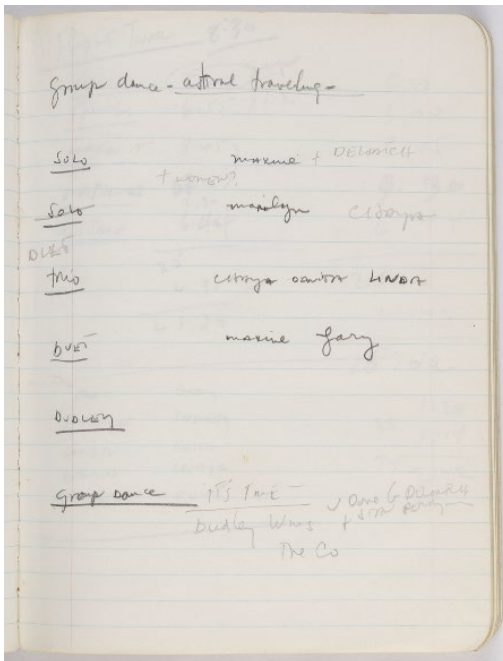 Group dance - astral traveling -
SOLO maxine + DELARICH
+ women?
Solo marilyn CHAYA
DUET
trio CHAYA DANITA LINDA
DUET maxine Gary
DUDLEY
Group Dance ITS TIME
Dudley Wms +
The Co